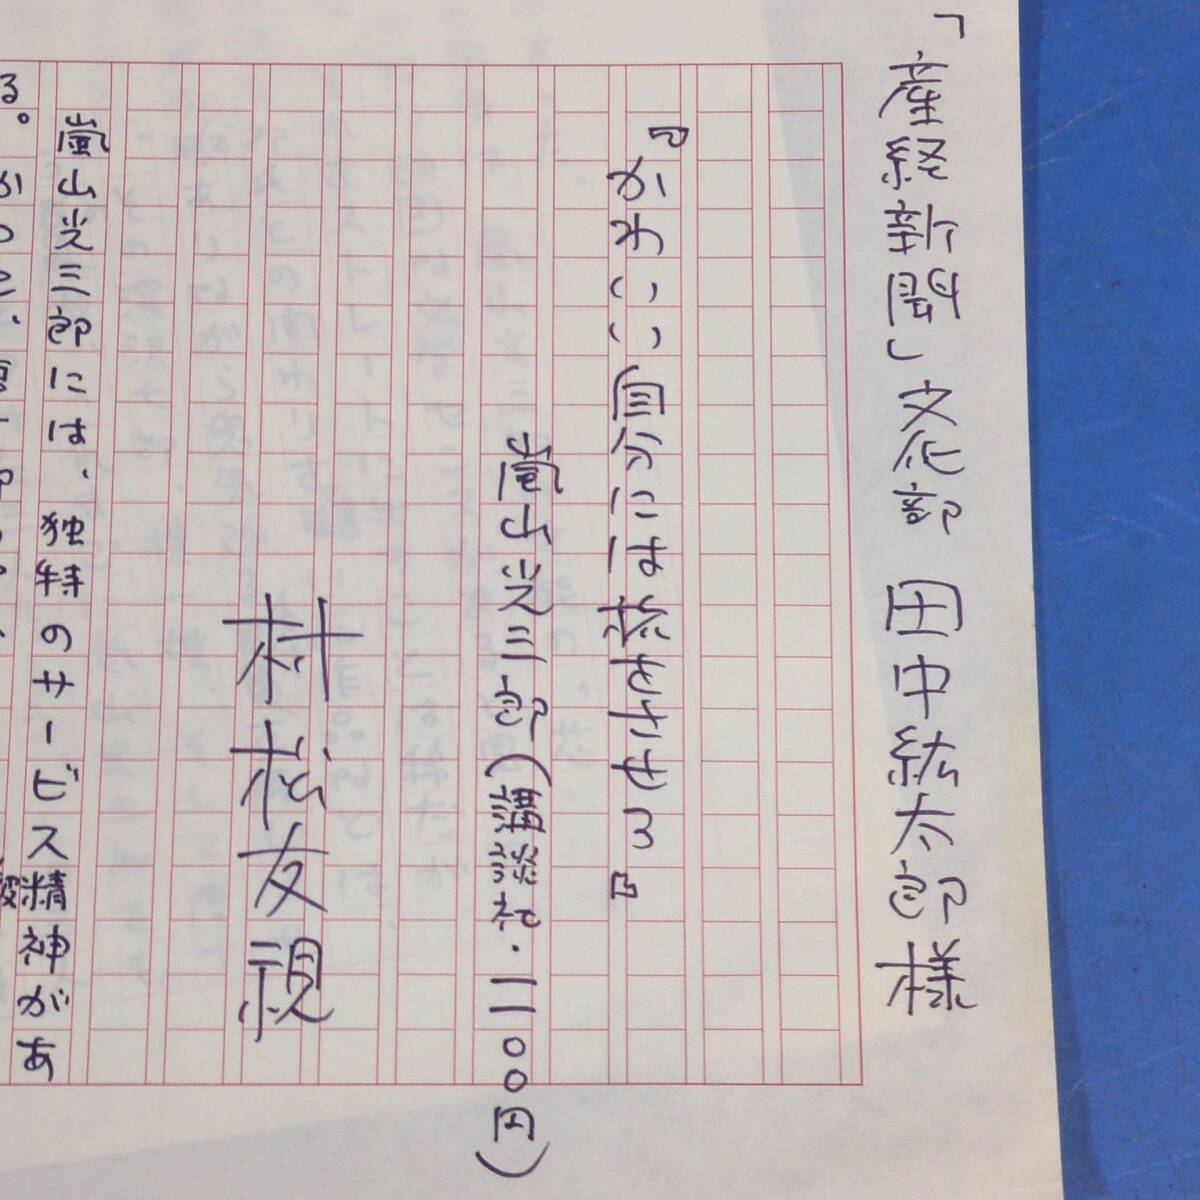 「産経新聞」文化部 田中紘太郎様
『かわいい自分には旅をさせろ』
嵐山光三郎(講談社・一一〇〇円)
村松友視
嵐山光三郎には、独特のサービス精神があ
る。かつて、